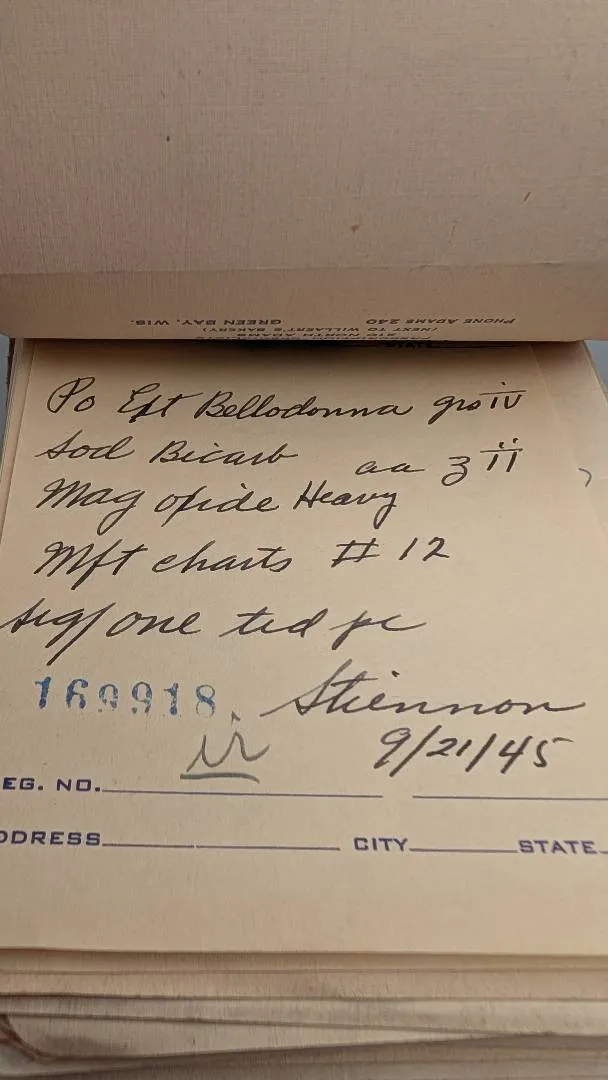 PHONE ADAMS 240 GREEN BAY, WIS.
(NEXT TO WILLAERT'S BAKERY)
310 NORTH ADAMS
Po Ext Bellodonna grs iv
Sod Bicarb aa ʒ ii
Mag oxide Heavy
Mft charts # 12
Sig/ one tid pc
169918 Stiennon
9/21/45
EG. NO.
DDRESS CITY STATE